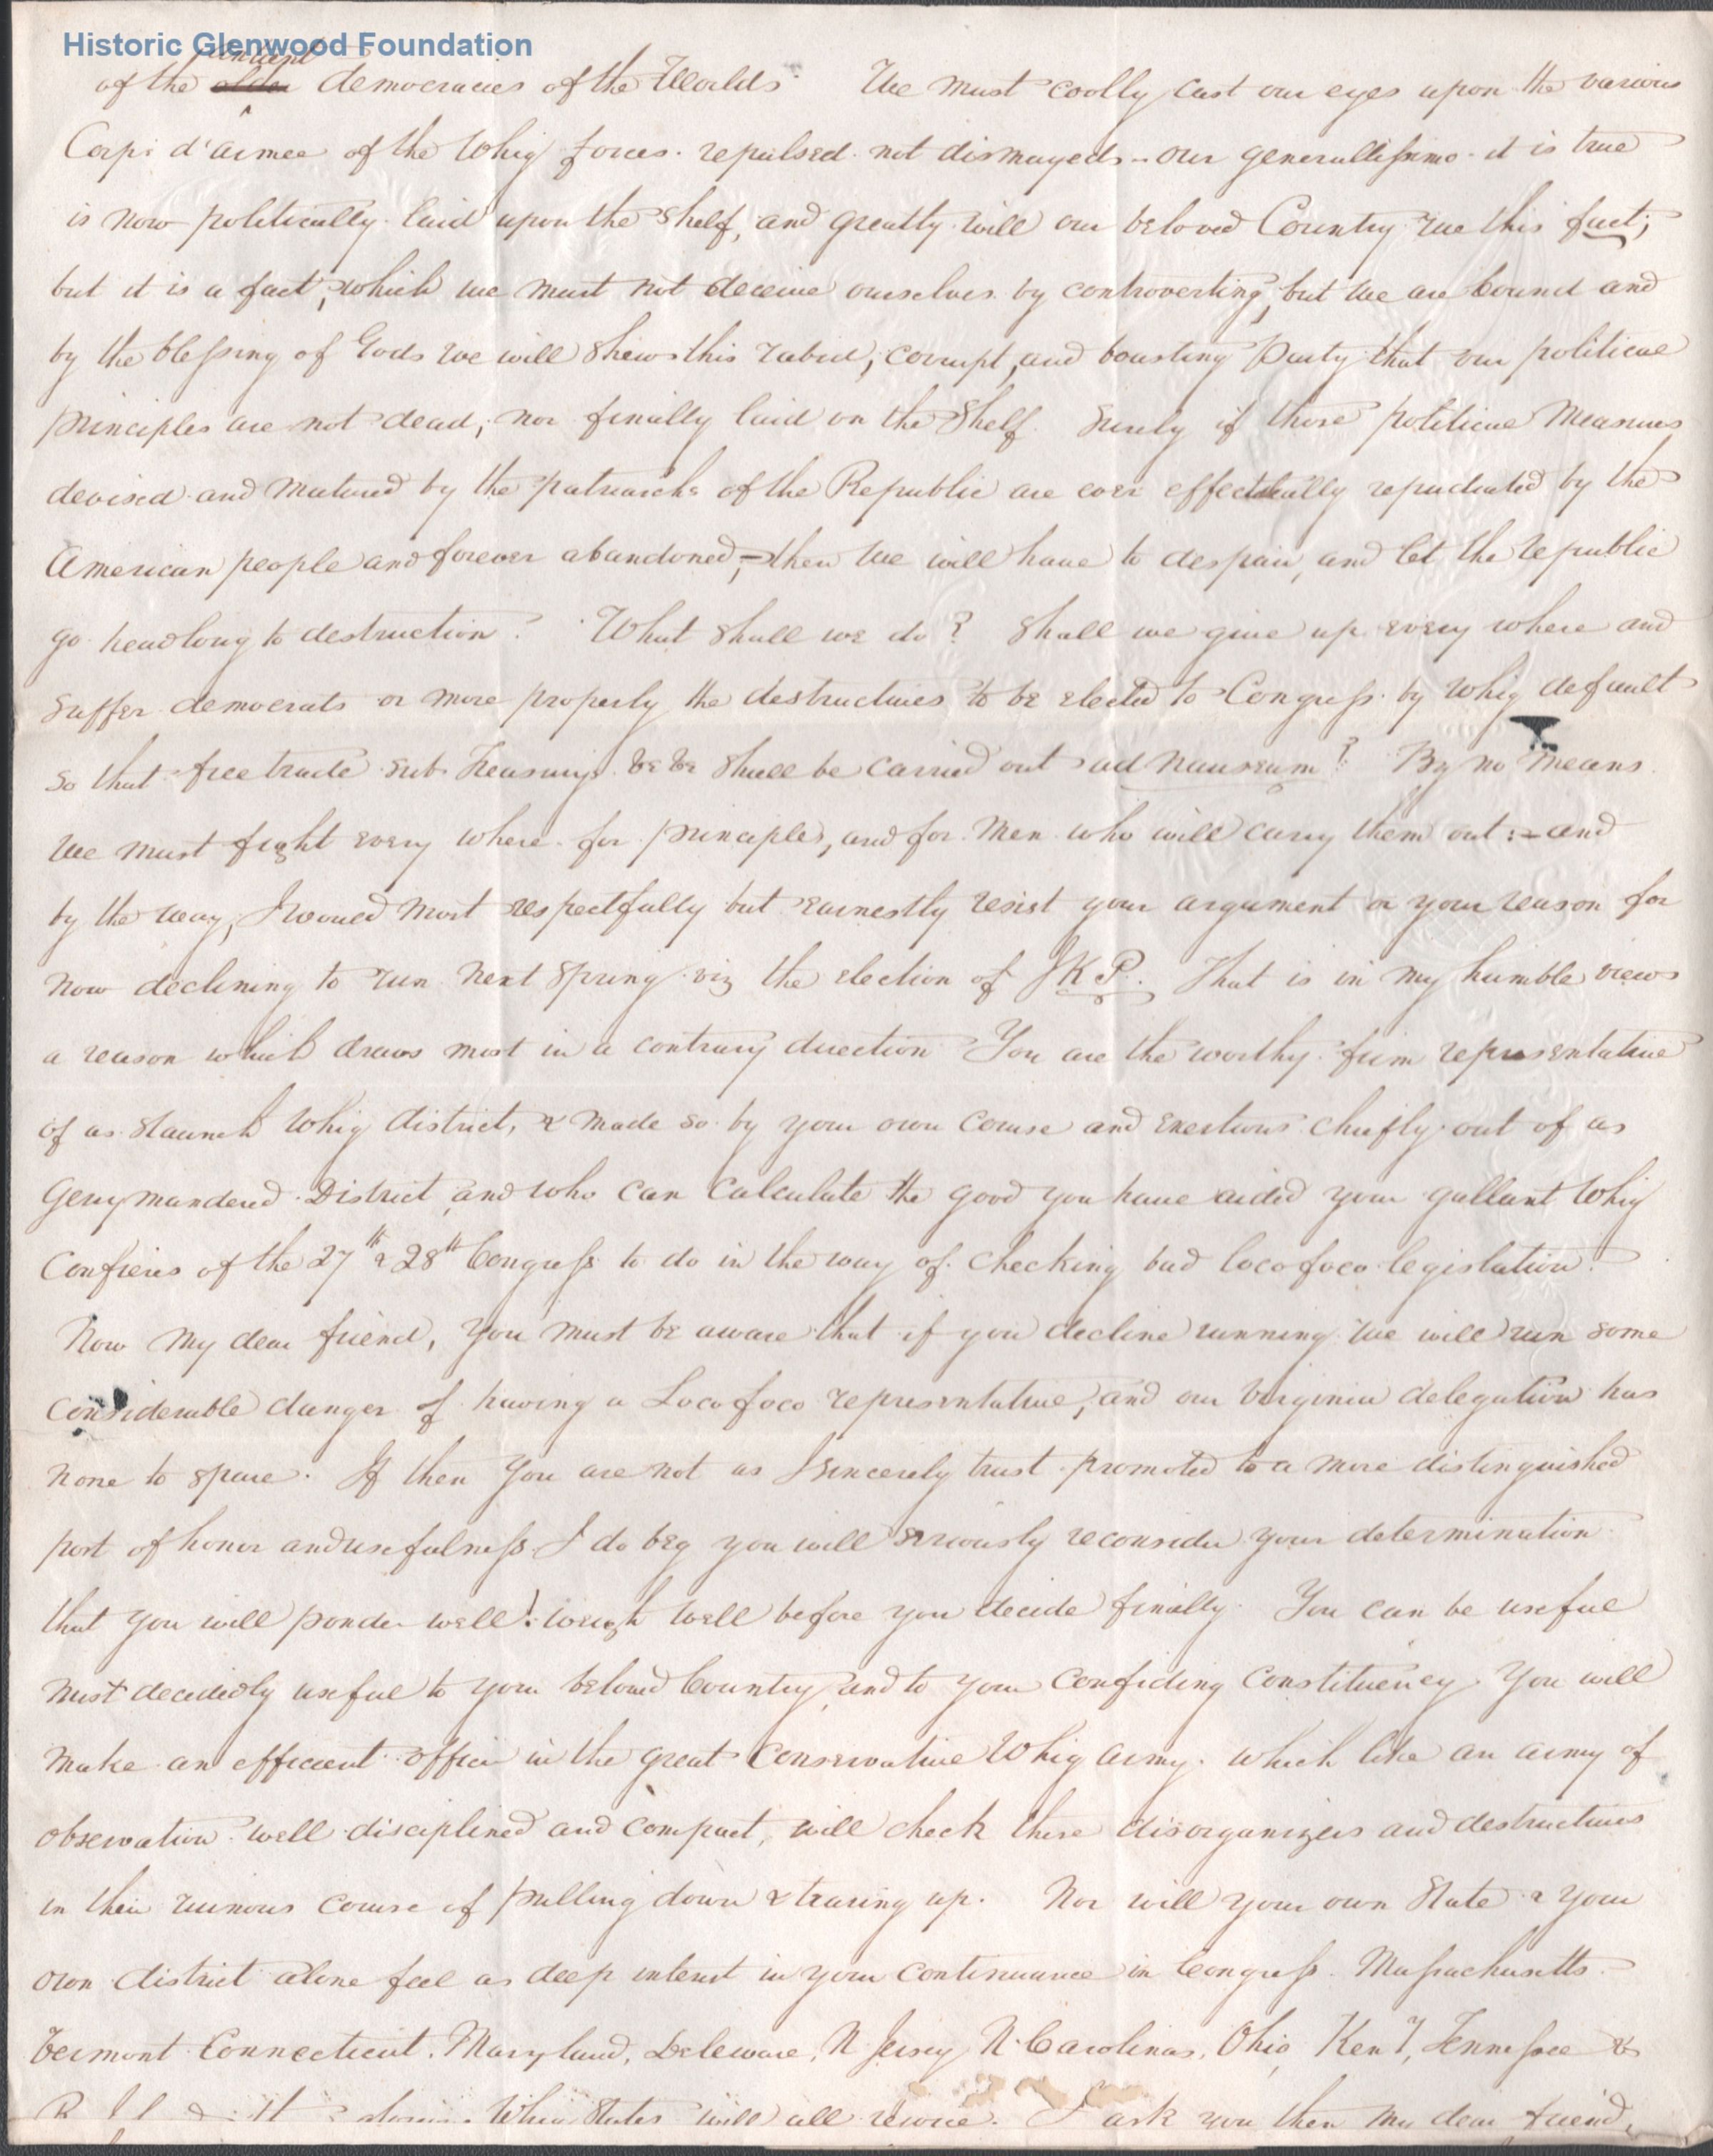 Historic Glenwood Foundation
ancient
of the older democracies of the World. We must coolly cast our eyes upon the various
Corps d'armee of the Whig forces. repulsed not dismayed - our generallissimo it is true
is now politically laid upon the shelf, and greatly will our beloved Country rue this fact;
but it is a fact, which we must not deceive ourselves by controverting, but we are bound and
by the blessing of God we will shew this rabid, corrupt, and boasting Party that our political
principles are not dead, nor finally laid on the Shelf. Surely if those political measures
devised and matured by the patriarchs of the Republic are ever effectually repudiated by the
American people and forever abandoned, - then we will have to despair, and let the republic
go headlong to destruction. What shall we do? Shall we give up every where and
suffer democrats or more properly the destructives to be elected to Congress by Whig default
so that free trade Sub Treasury &c &c shall be carried out ad nauseum? By no means.
We must fight every where for principles, and for men who will carry them out: - and
by the way, I would most respectfully but earnestly resist your argument or your reason for
now declining to run next spring viz the election of JKP. That is in my humble view
a reason which draws most in a contrary direction You are the worthy firm representative
of a staunch Whig district, & made so by your own course and exertions chiefly out of a
Gerrymandered District, and who can calculate the good you have aided your gallant Whig
Confreres of the 27th & 28th Congress to do in the way of checking bad locofoco legislation.
Now my dear friend, you must be aware that if you decline running we will run some
considerable danger of having a Locofoco representative, and our Virginia delegation has
none to spare. If then you are not as I sincerely trust promoted to a more distinguished
post of honor and usefulness I do beg you will seriously reconsider your determination
that you will ponder well! weigh well before you decide finally. You can be useful
most decidedly useful to your beloved Country and to your confiding Constituency. You will
make an efficient officer in the great Conservative Whig army. which like an army of
observation well disciplined and compact, will check these disorganizers and destructives
in their ruinous course of pulling down & tearing up. Nor will your own State & your
own district alone feel a deep interest in your continuance in Congress. Massachusetts
Vermont Connecticut. Maryland, Deleware, N Jersey N. Carolina, Ohio, Ken T, Tennessee &
Whig States will all rejoice. I ask you then my dear friend,